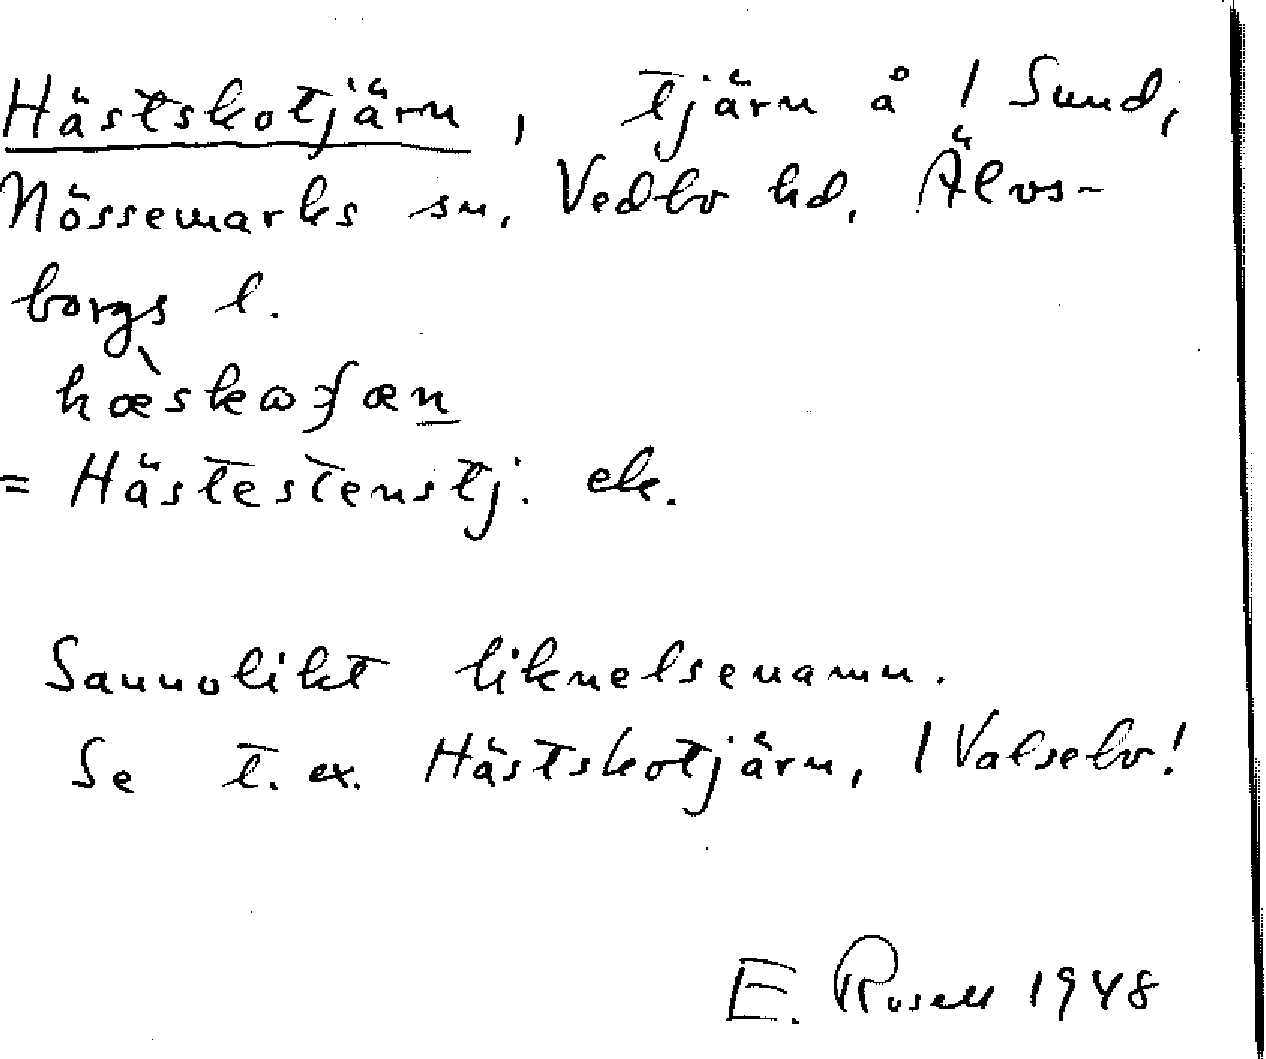 Hästskotjärn, tjärn å 1 Sund,
Nössemarks sn, Vedbo hd, Älvs-
borgs l.
= Hästestenstj. ek.
Sannolikt liknelsenamn.
Se t. ex. Hästskotjärn, 1 Valsebo!
E. Rosell 1948